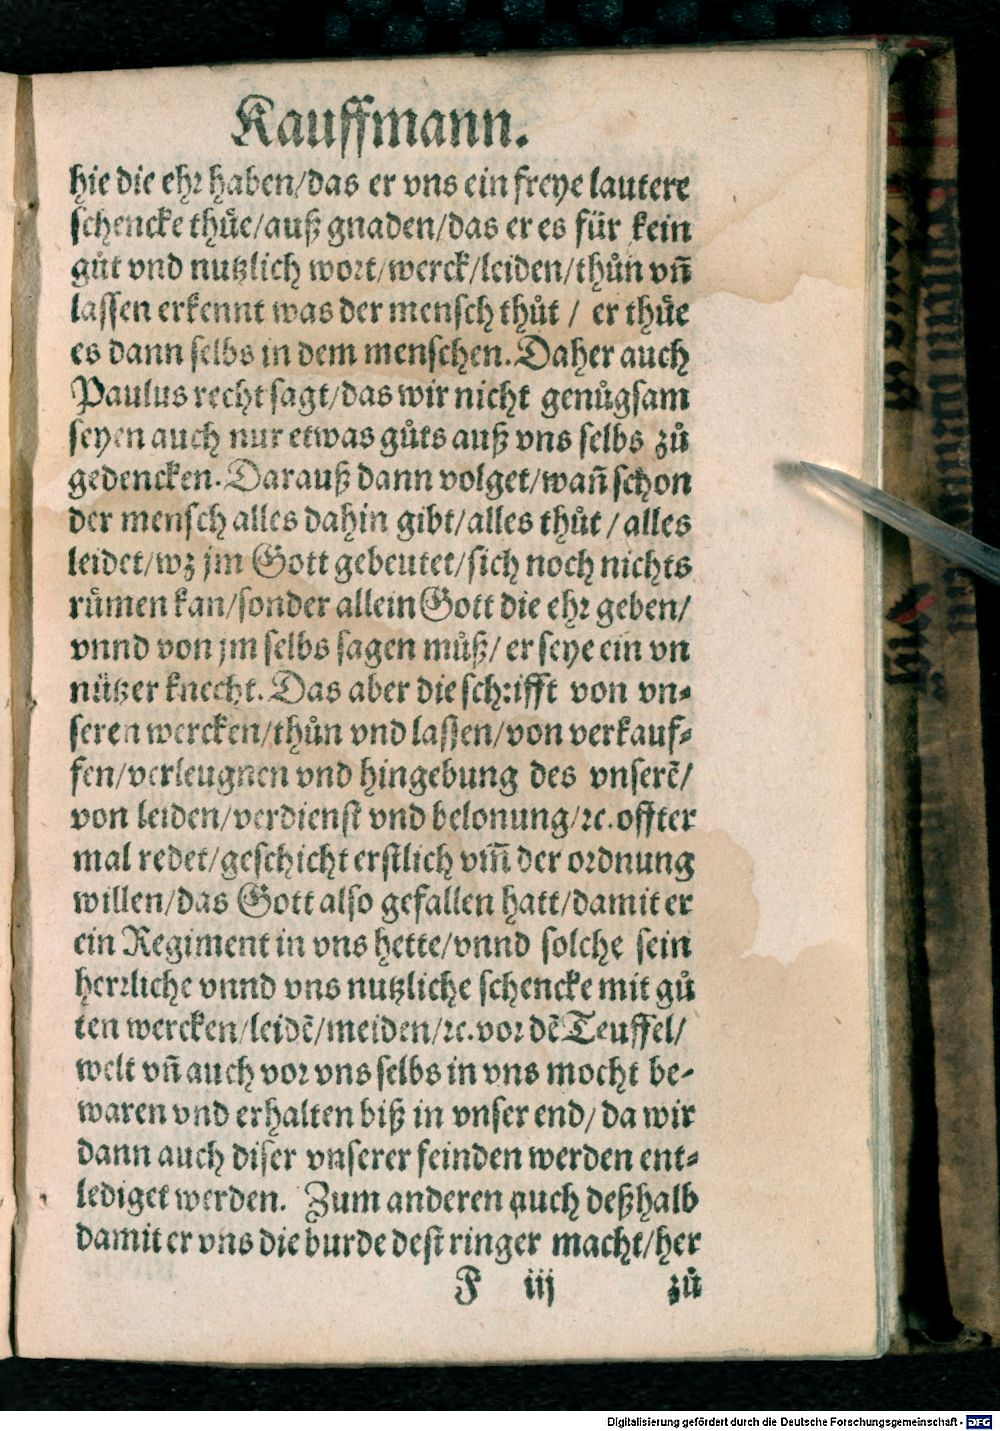 Kauffmann.
hie die ehr haben/das er vns ein freye lautere
schencke thuͤe/auß gnaden/das er es für kein
guͦt vnd nutzlich wort/werck/leiden/thuͦn vñ
lassen erkennt was der mensch thuͦt / er thuͤe
es dann selbs in dem menschen. Daher auch
Paulus recht sagt/das wir nicht genuͦgsam
seyen auch nur etwas guͦts auß vns selbs zuͦ
gedencken. Darauß dann volget/wañ schon
der mensch alles dahin gibt/alles thuͦt / alles
leidet/wz jm Gott gebeutet/sich noch nichts
ruͦmen kan/sonder allein Gott die ehr geben/
vnnd von jm selbs sagen muͦß/ er seye ein vn
nützer knecht. Das aber die schrifft von vn⸗
seren wercken/thuͦn vnd lassen/von verkauf⸗
fen/verleugnen vnd hingebung des vnserẽ/
von leiden/verdienst vnd belonung/ꝛc. offter
mal redet/geschicht erstlich vm̃ der ordnung
willen/das Gott also gefallen hatt/damit er
ein Regiment in vns hette/vnnd solche sein
herrliche vnnd vns nutzliche schencke mit guͦ
ten wercken/leidẽ/meiden/ꝛc. vor dẽ Teuffel/
welt vñ auch vor vns selbs in vns mocht be-
waren vnd erhalten biß in vnser end/ da wir
dann auch diser vnserer feinden werden ent⸗
lediget werden. Zum anderen auch deßhalb
damit er vns die burde dest ringer macht/her
F iij zuͦ
Digitalisierung gefördert durch die Deutsche Forschungsgemeinschaft - DFG